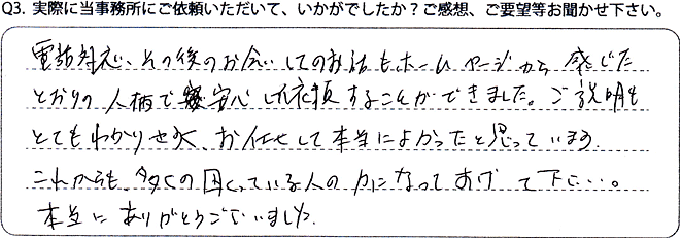 Q3. 実際に当事務所にご依頼いただいて、いかがでしたか？ご感想、ご要望等お聞かせ下さい。
電話対応、その後のお会いしてのお話もホームページから感じた
とおりの人柄で安心して依頼することができました。ご説明も
とてもわかりやすく、お任せして本当によかったと思っています。
これからも多くの困っている人の力になってあげて下さい。
本当にありがとうございました。